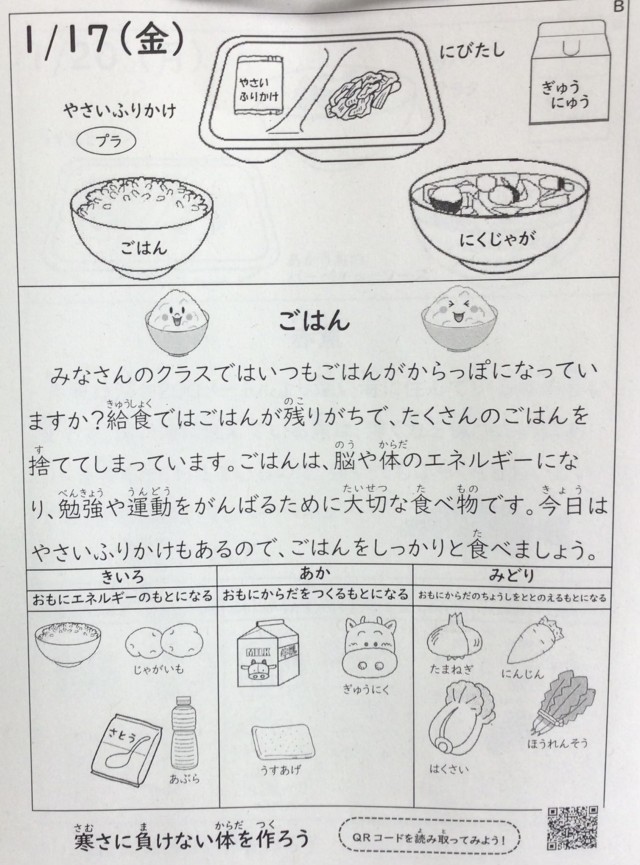 B
1/17(金)
やさいふりかけ
プラ
やさい
ふりかけ
にびたし
ぎゅう
にゅう
ごはん
にくじゃが
ごはん
みなさんのクラスではいつもごはんがからっぽになってい
ますか？給食ではごはんが残りがちで、たくさんのごはんを
捨ててしまっています。ごはんは、脳や体のエネルギーにな
り、勉強や運動をがんばるために大切な食べ物です。今日は
やさいふりかけもあるので、ごはんをしっかりと食べましょう。
きいろ
おもにエネルギーのもとになる
じゃがいも
さとう
あぶら
あか
おもにからだをつくるもとになる
MILK
ぎゅうにく
うすあげ
みどり
おもにからだのちょうしをととのえるもとになる
たまねぎ
にんじん
はくさい
ほうれんそう
寒さに負けない体を作ろう
QRコードを読み取ってみよう！